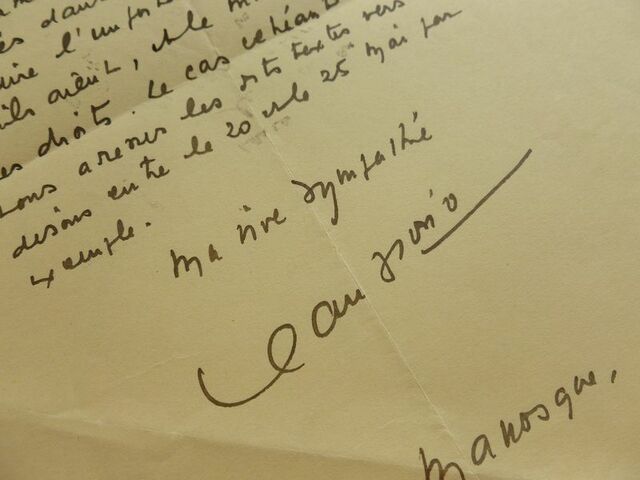 és dans
l'import
ils aient, et le m
es droits. Le cas échéant
nous avons les dits textes vers
disons entre le 20 et le 25 mai par
exemple.
Ma vive sympathie
Jean Giono
Manosque,